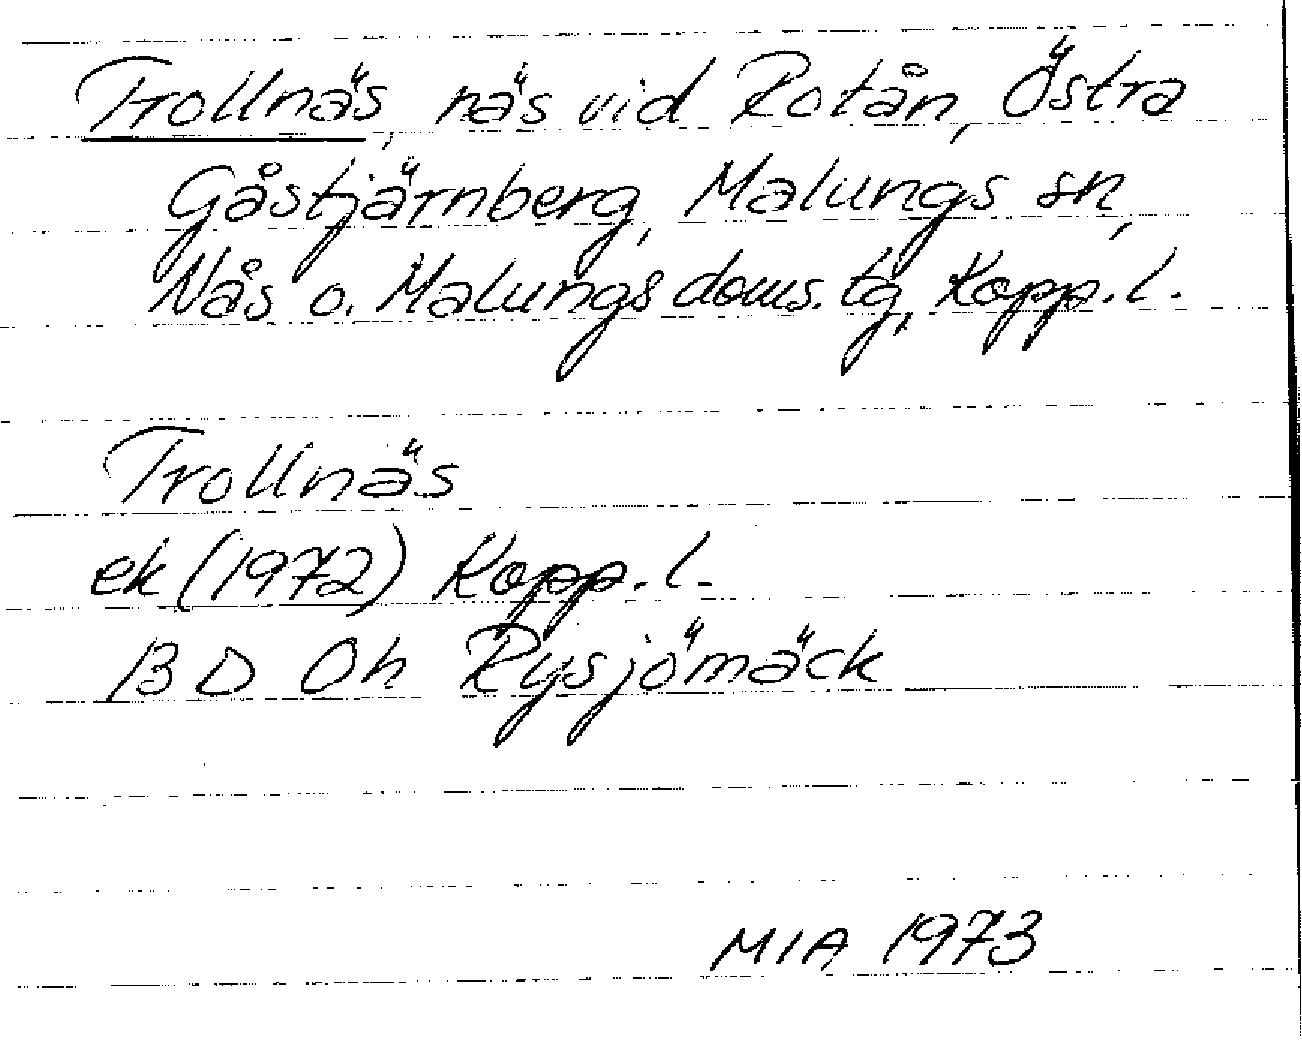 Trollnäs, näs vid Rotån, Östra
Gåstjärnberg, Malungs sn,
Nås o. Malungs doms. tg, Kopp. l.
Trollnäs
ek (1972) Kopp. l.
13 D Oh Rysjömäck
MIA 1973